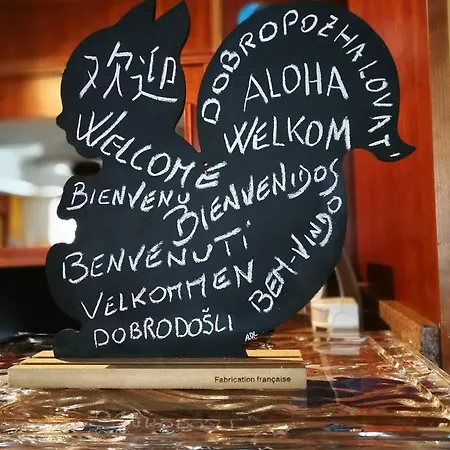 欢迎
WELCOME
BIENVENU
BENVENUTI
VELKOMMEN
DOBRODOŠLI
DOBROPOZHALOVAT'
ALOHA
WELKOM
BIENVENIDOS
BEM-VINDO
Fabrication française